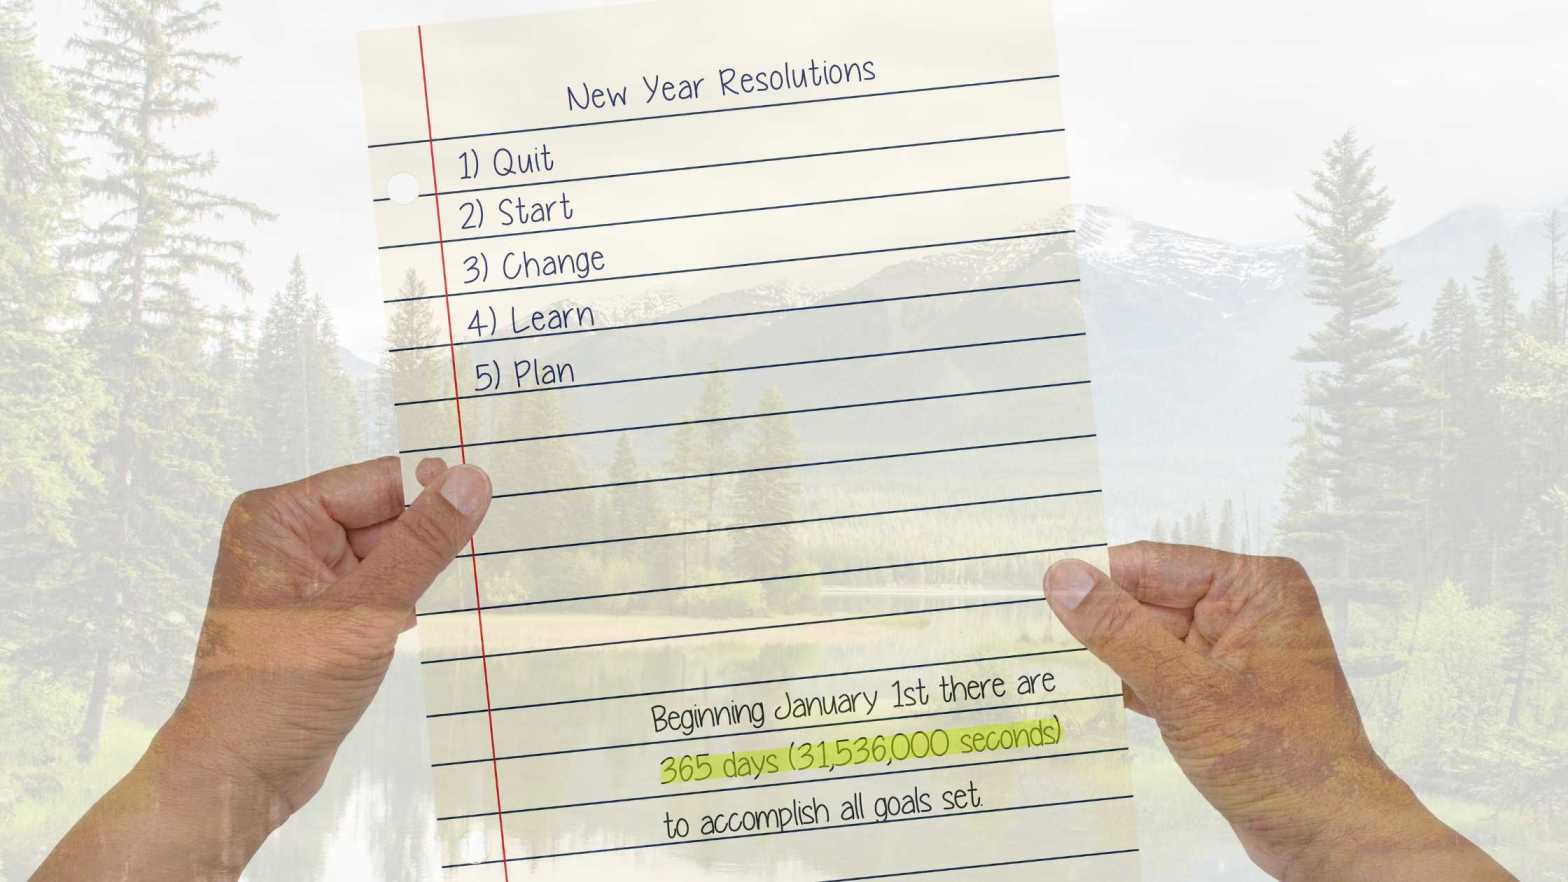 New Year Resolutions
1) Quit
2) Start
3) Change
4) Learn
5) Plan
Beginning January 1st there are
365 days (31,536,000 seconds)
to accomplish all goals set.